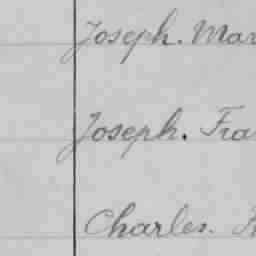 Joseph. Mar
Joseph. Fra
Charles.